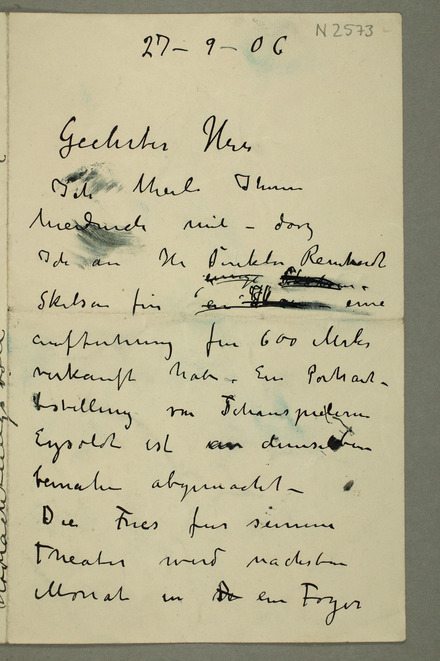 N 2573
27 - 9 - 06
Geehrter Herr
Ich theile Ihnen
hierdurch mit - dass
Ich an Hr Direktor Reinhardt
Skitsen für eine
aufführung für 600 Marks
verkauft habe. Ein Portrait-
bestellung von Schauspielerin
Eysoldt ist denselben
beinahe abgemacht -
Die Fries fur seinem
Theater wird nachsten
Monat in ein Foyer